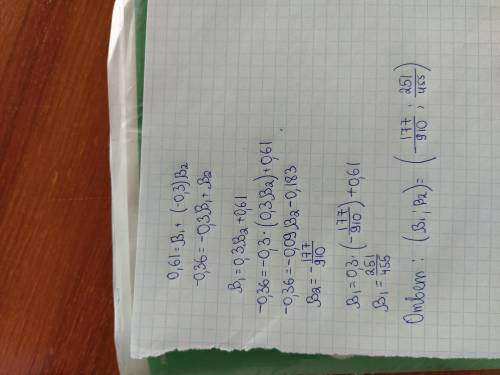 0,61 = β₁ + (-0,3)β₂
-0,36 = -0,3β₁ + β₂
β₁ = 0,3β₂ + 0,61
-0,36 = -0,3 · (0,3β₂) + 0,61
-0,36 = -0,09β₂ - 0,183
β₂ = -177/910
β₁ = 0,3 · (-177/910) + 0,61
β₁ = 251/455
Ответ: (β₁; β₂) = (-177/910; 251/455)